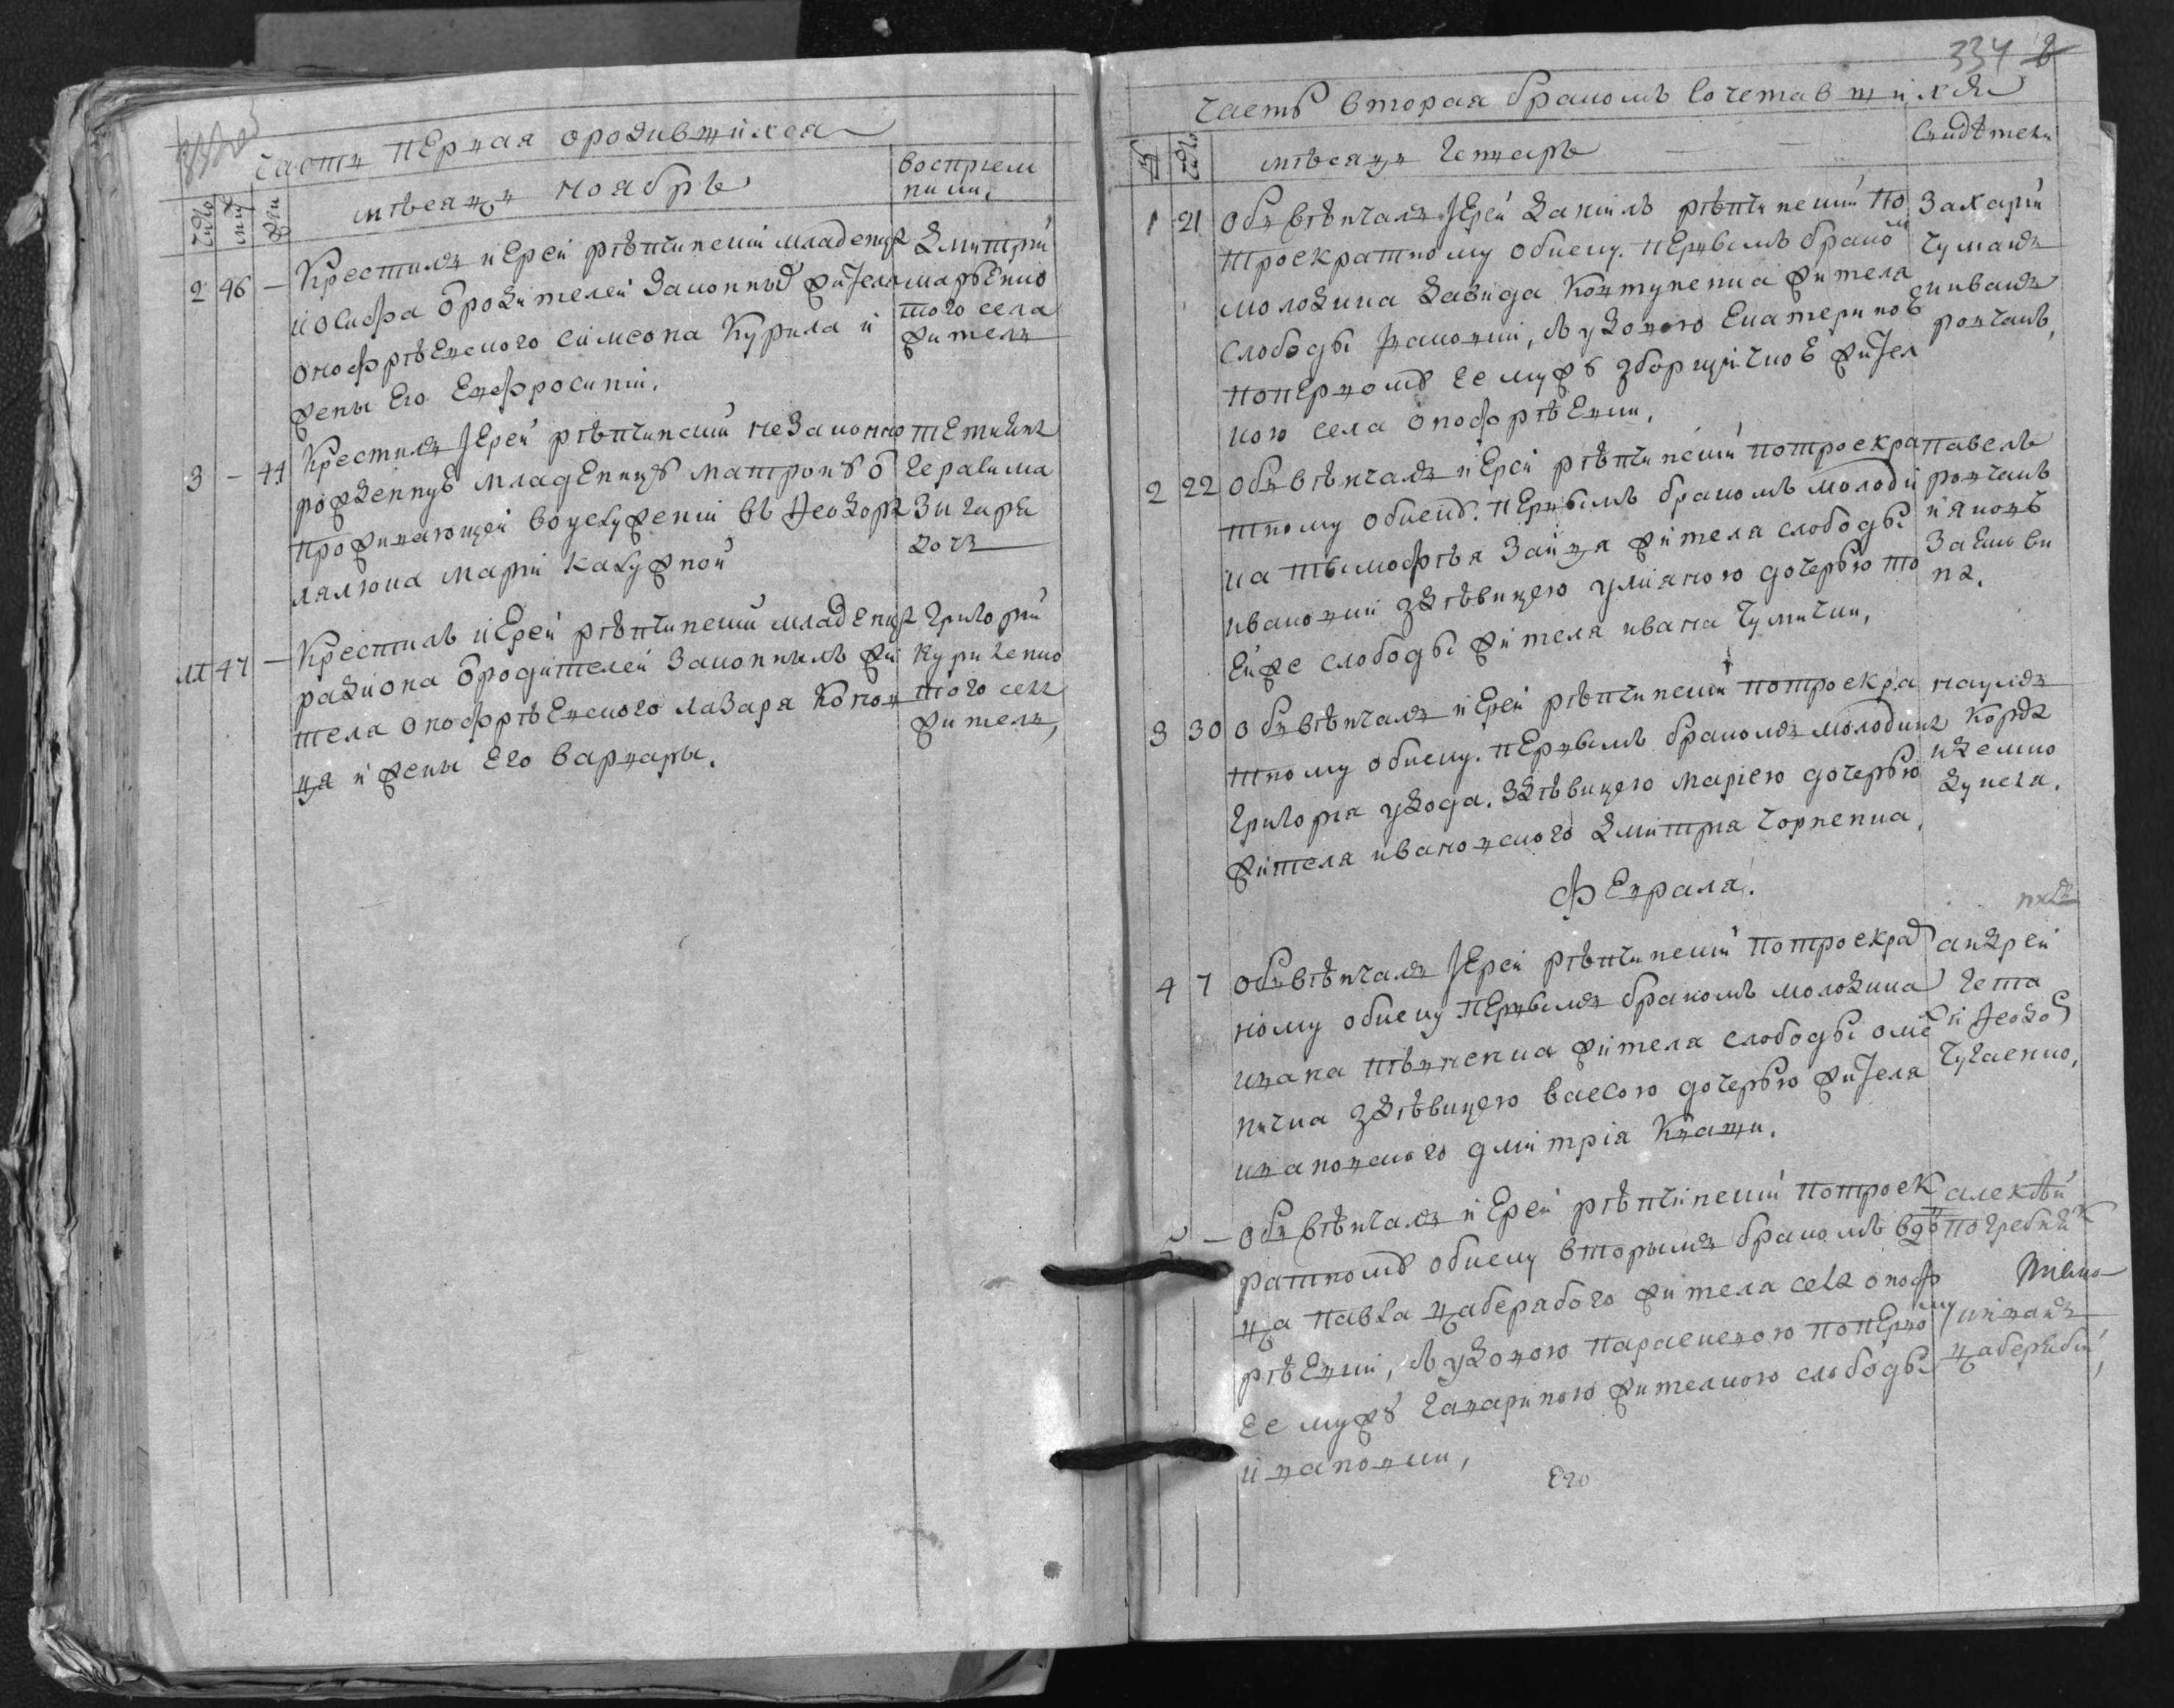 Часть первая о родившихся
число
муж
жен
месяца ноября
восприем
ники.
2 46 — Крестилъ иерей Рѣпчинский младенца
Иосифа от родителей законных жителя
Онофрѣевского Симеона Курила и
жены его Евфросинии.
Дмитрий
Марченко
того села
житель
3 — 44 Крестилъ Iерей Рѣпчинский незаконно
рожденную младеницу Матрону от
проживающей во услужении въ Федора
Лялюка Марии Калужной
Герасима
дочь
11 47 — Крестилъ иерей Рѣпчинский младенца
Радиона от родителей законныхъ жи
теля Онофрѣевского Лазаря Конов
ця и жены его Варвары.
Григорий
Куриченко
того села
житель,
334
Часть вторая бракомъ сочетавшихся
число
месяца Генваря
Свидѣтели
1 21 Обвѣнчалъ Iерей Данiилъ Рѣпчинский по
троекратному обиску. первымъ браком
молодика Давида Ковтуненка жителя
слободы Ивановки, съ удовою Екатериною
по первому ее мужу Зборщичкою жител
кою села Онофрѣевки.
Захарий
Чуманъ
и Иванъ
Рончакъ,
2 22 Обвѣнчалъ иерей Рѣпчинский по троекра
тному обиску. первымъ бракомъ молоди
ка Тимофѣя Зайця жителя слободы
Ивановки з дѣвицею Улияною дочерью то
ей же слободы жителя Ивана Чумички,
Павелъ
Рончакъ
и Яковъ
3 30 Обвѣнчалъ иерей Рѣпчинский по троекра
тному обиску. первымъ бракомъ молодика
Григория Удода. з дѣвицею Мариею дочерью
жителя Ивановского Дмитрия Чорненка,
Наумъ
Корда
Февраля.
4 7 Обвѣнчалъ Iерей Рѣпчинский по троекрат
ному обиску первымъ бракомъ молодика
Ивана Пѣвненка жителя слободы Оме
лничка з дѣвицею Вассою дочерью жителя
Ивановского Дмитрiя Кваши.
Андрей
Гета
и Федор
5 — Обвѣнчалъ иерей Рѣпчинский по троек
ратному обиску вторымъ бракомъ вдов
ца Павла Цаберабого жителя села Оноф
рѣевки, съ удовою Параскевою по первому
ее мужу Гавариною жителкою слободы
Ивановки,
Алексѣй
Погребняк
Иванъ
Цаберабий,
Его